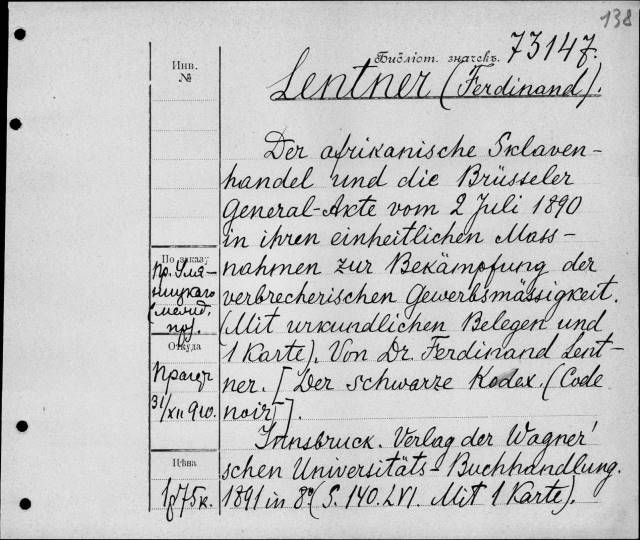 138
Библіот. значекъ. 73147.
Инв.
№
Lentner (Ferdinand).
Der afrikanische Sklaven-
handel und die Brüsseler
General-Akte vom 2 Juli 1890
in ihren einheitlichen Mass-
nahmen zur Bekämpfung der
verbrecherischen Gewerbsmässigkeit.
(Mit urkundlichen Belegen und
1 Karte). Von Dr. Ferdinand Lent-
ner. [Der schwarze Kodex. (Code
noir)].
Innsbruck. Verlag der Wagner'
schen Universitäts-Buchhandlung.
1891 in 8º (S. 140. LVI. Mit 1 Karte).
По заказу
пр. Уля-
ницкаго
(межд.
пр).
Откуда
31/XII 910.
Цѣна
1 р 75 к.